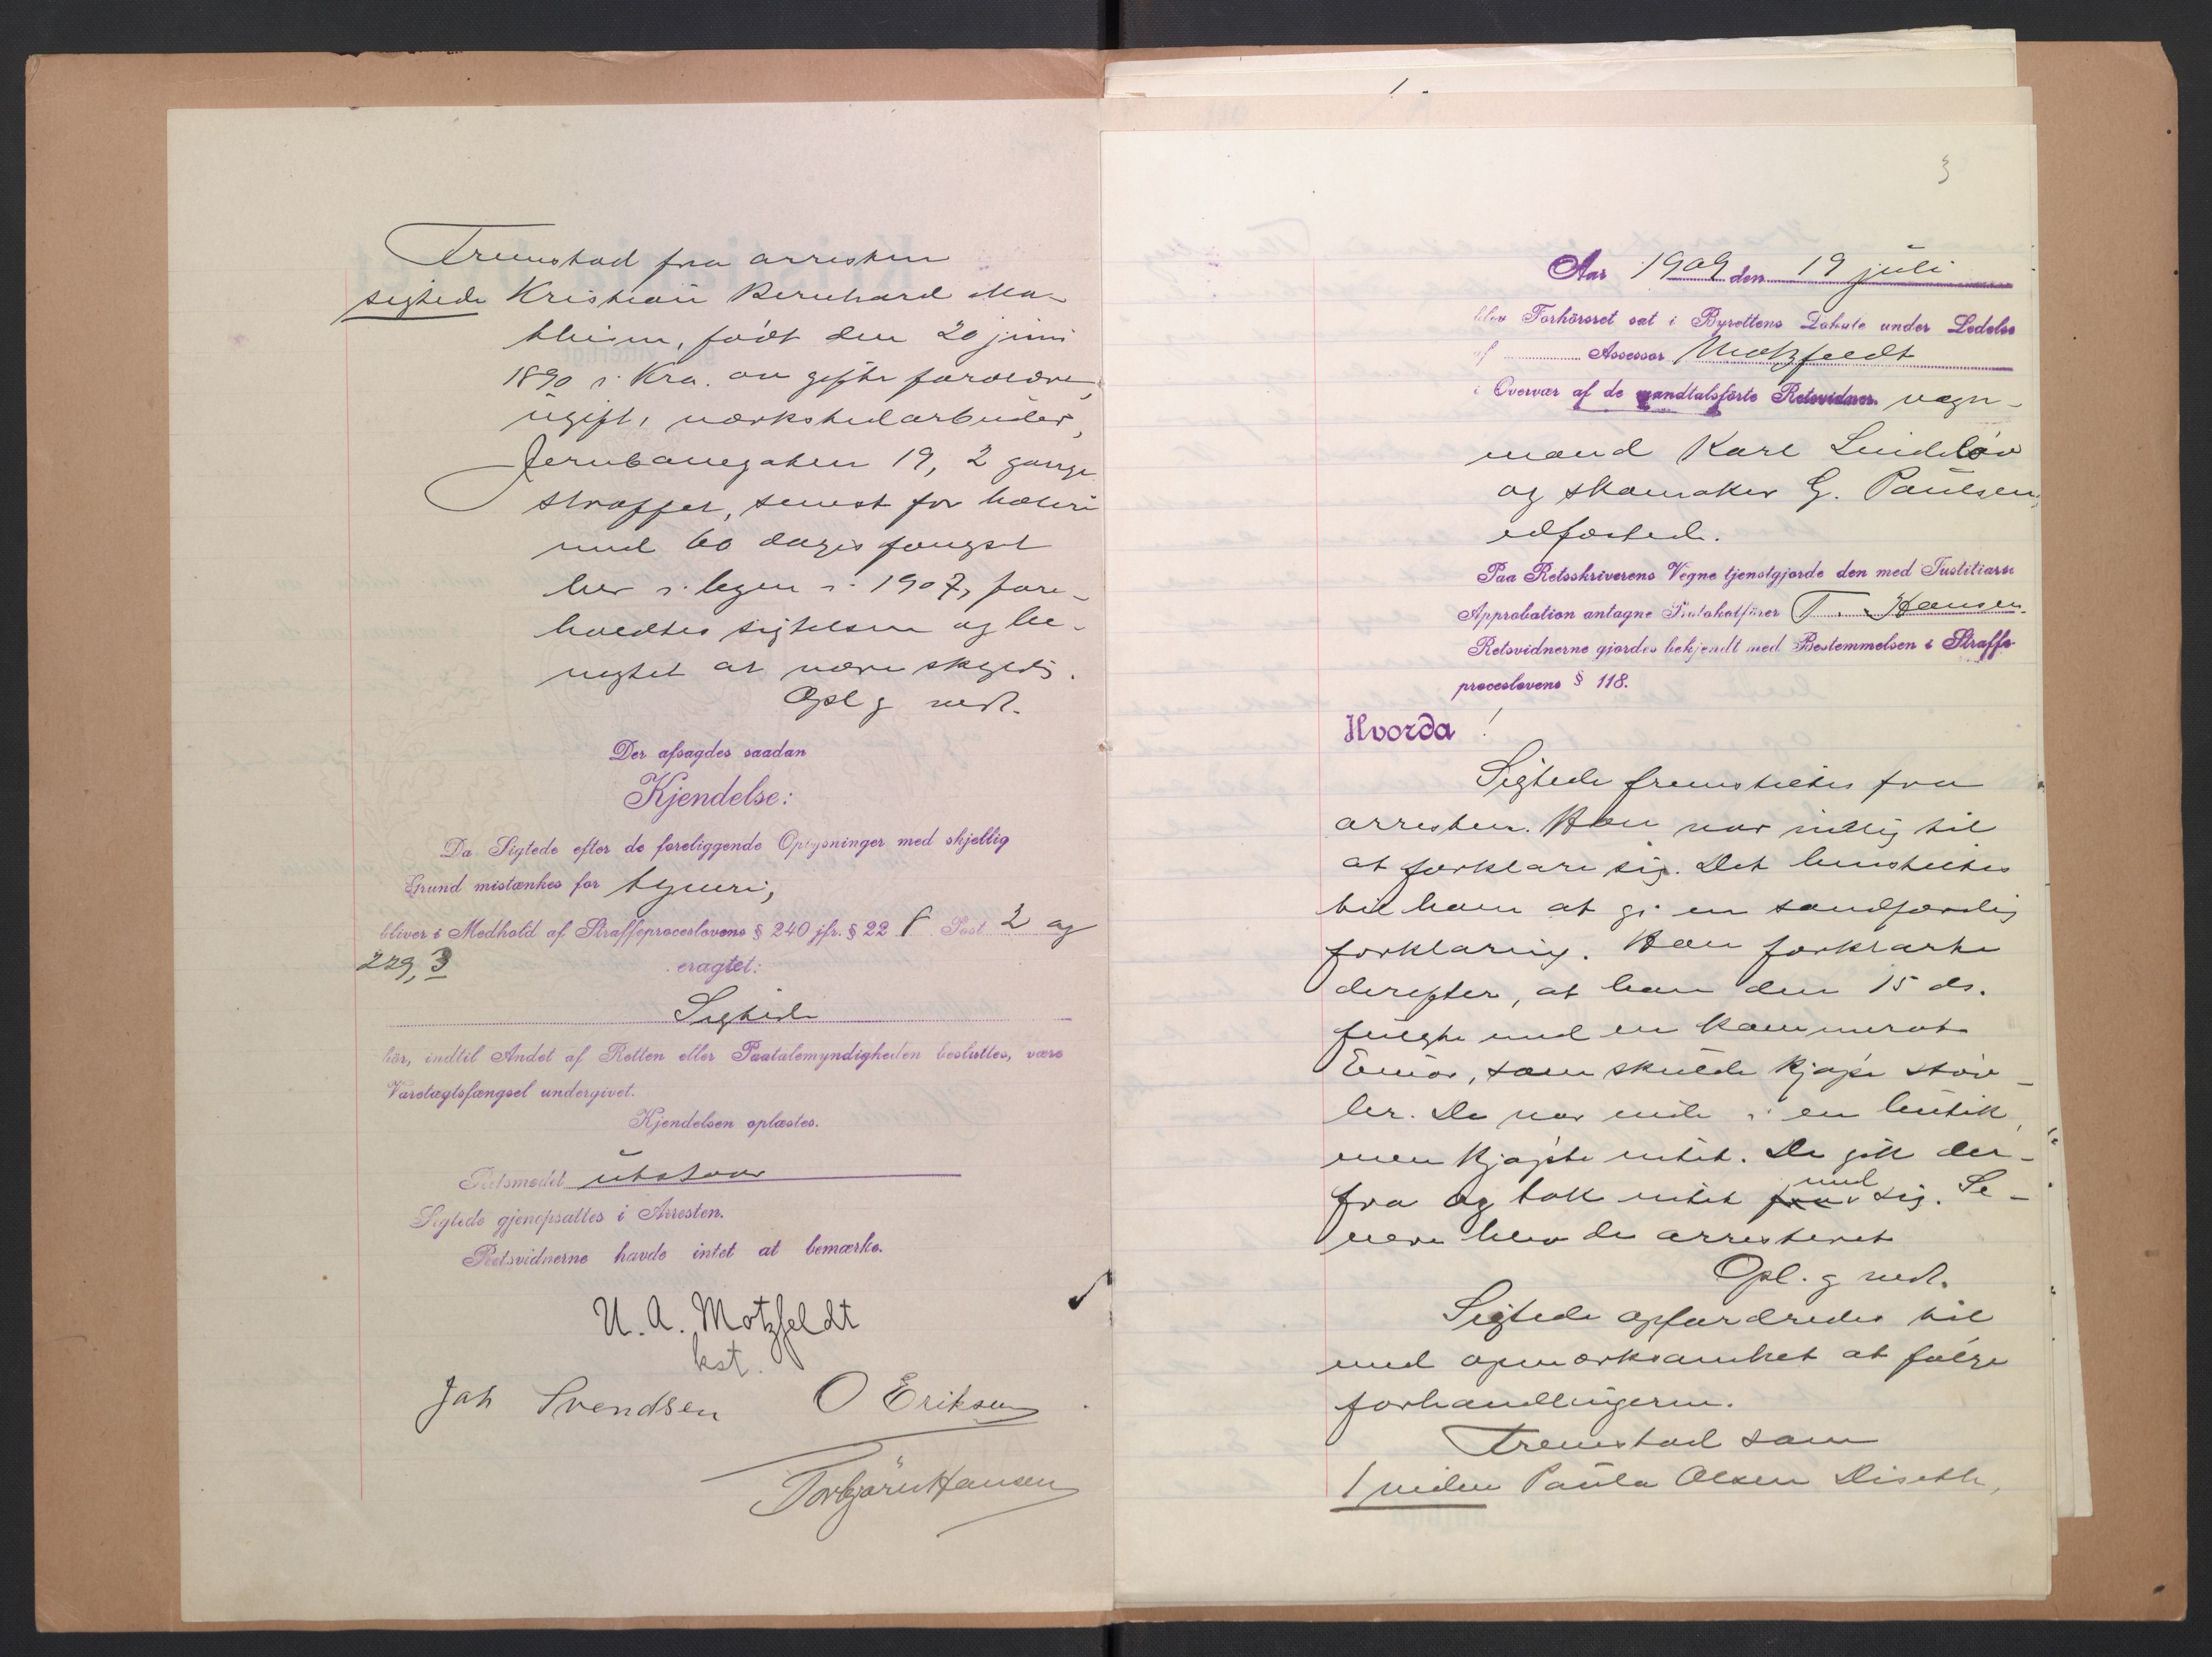 Fremstod fra arresten
sigtede Kristian Bernhard Ma-
thisen, født den 20 juni
1890 i Kra. av gifte forældre,
ugift, verkstedarbeider,
Jernbanegaten 19, 2 gange
straffet, senest for hæleri
med 60 dages fængsel
her i byen i 1907, fore-
holdtes sigtelsen og be-
negtet at være skyldig.
Opl. g vedt.
Der afsagdes saadan
Kjendelse:
Da Sigtede efter de foreliggende Oplysninger med skjellig
Grund mistænkes for tyveri,
bliver i Medhold af Straffeproceslovens § 240 jfr. § 228 Post 2 og
229, 3 eragtet:
Sigtede
bör, indtil Andet af Retten eller Paatalemyndigheden besluttes, være
Varetægtsfængsel undergivet.
Kjendelsen oplæstes.
Retsmødet utstaar
Sigtede gjenopsattes i Arresten.
Retsvidnerne havde intet at bemærke.
U. A. Motzfeldt
kst.
Joh Svendsen O Eriksen
Torbjörn Hansen
1.
3
Aar 1909 den 19 juli
blev Forhörsret sat i Byrettens Lokale under Ledelse
af Assessor Motzfeldt
i Overvær af de mandtalsförte Retsvidner vogn-
mand Karl Lindløv
og skomaker G. Paulsen,
edfæstede.
Paa Retsskriverens Vegne tjenstgjorde den med Justitiarii
Approbation antagne Protokolförer T. Hansen.
Retsvidnerne gjordes bekjendt med Bestemmelsen i Straffe-
proceslovens § 118.
Hvorda!
Sigtede fremstilles fra
arresten. Han var villig til
at forklare sig. Det henstilles
til ham at gi en sandfærdig
forklaring. Han forklarte
derefter, at han den 15 ds.
fulgte med en kammerat
Einar, som skulde kjøpe støv-
ler. De var inde i en butik,
men kjøpte intet. De gik der-
fra og tok intet fra med sig. Se-
nere blev de arresteret
Opl. g vedt.
Sigtede opfordredes til
med opmerksomhet at følge
forhandlingerne.
Fremstod som
1 vidne Paula Olsen Diseth,